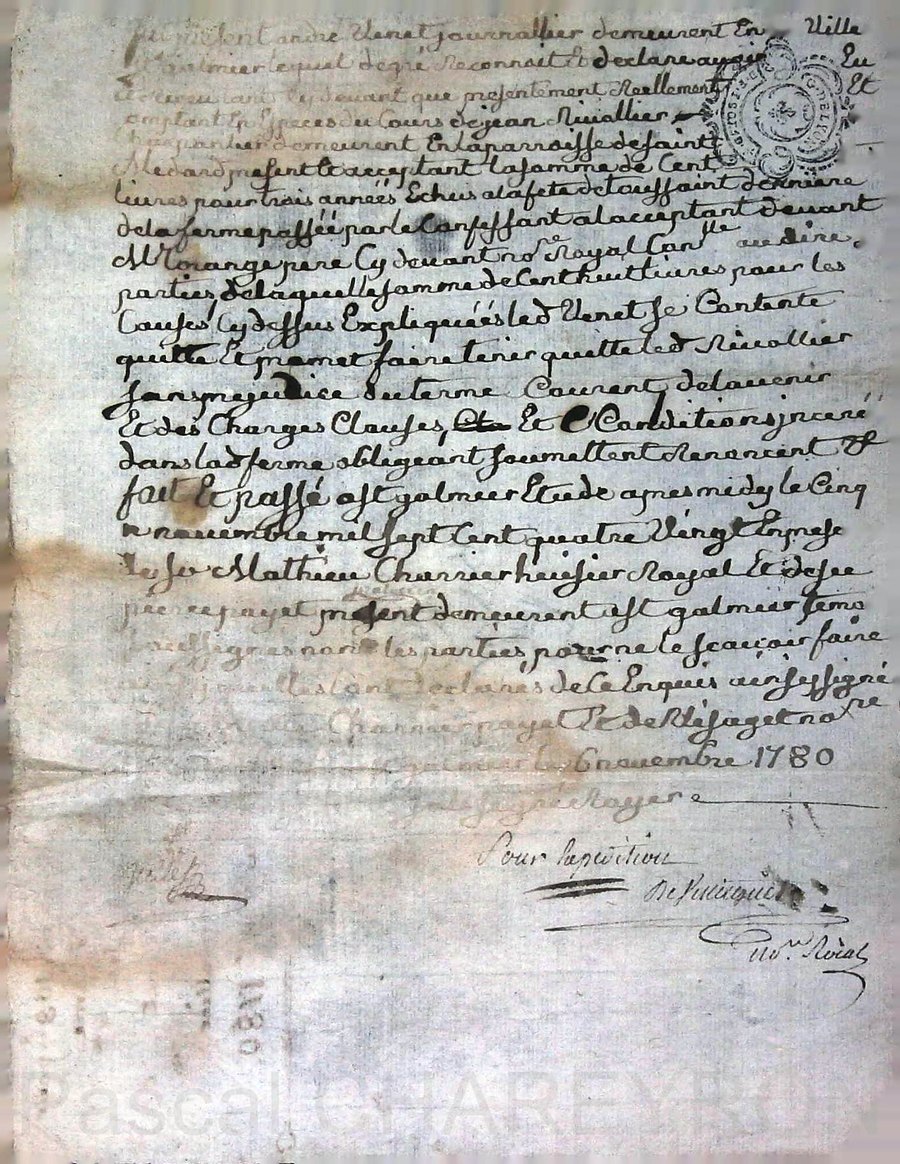 présent andre Venet journallier demeurent En Ville
St galmier lequel de gré Reconnoit Et declare avoir Eu
Et Receu tant Cy devant que presentement Reellement Et
Comptant En Especes du Cours de jean Rivollier
Charpantier demeurent En la parroisse de Saint
Medard present Et acceptant la somme de Cent
livres pour trois années Echus a la fete de toussaint derniere
de la ferme passée par le Confessant al acceptant devant
Mr orange pere Cy devant nore Royal Conlle au dire
parties, de laquelle somme de Cent huit livres pour les
Causes Cy dessus Expliquéés led Venet se Contente
quitte Et promet faire tenir quitte led Rivollier
sans prejudice du terme Courent de lavenir
Et des Charges Clauses, Et Conditions jnceré
dans lad ferme obligeant soumettent Renoncent &
fait Et passé a st galmier Etude apres midy le Cinq
novembre mil sept Cent quatre Vingt En prese
de sr Mathieu Charrier huissier Royal Et de sr
pierre payet present demeurent a st galmier temo
soussignés non les parties pour ne le scavoir faire
declarés de Ce Enquis ainsy signé
Charrier payet Et nore
galmier le 6 novembre 1780
signé Royer
Pour Expedition
nore. Roial
1780
Pascal CHAREYRON